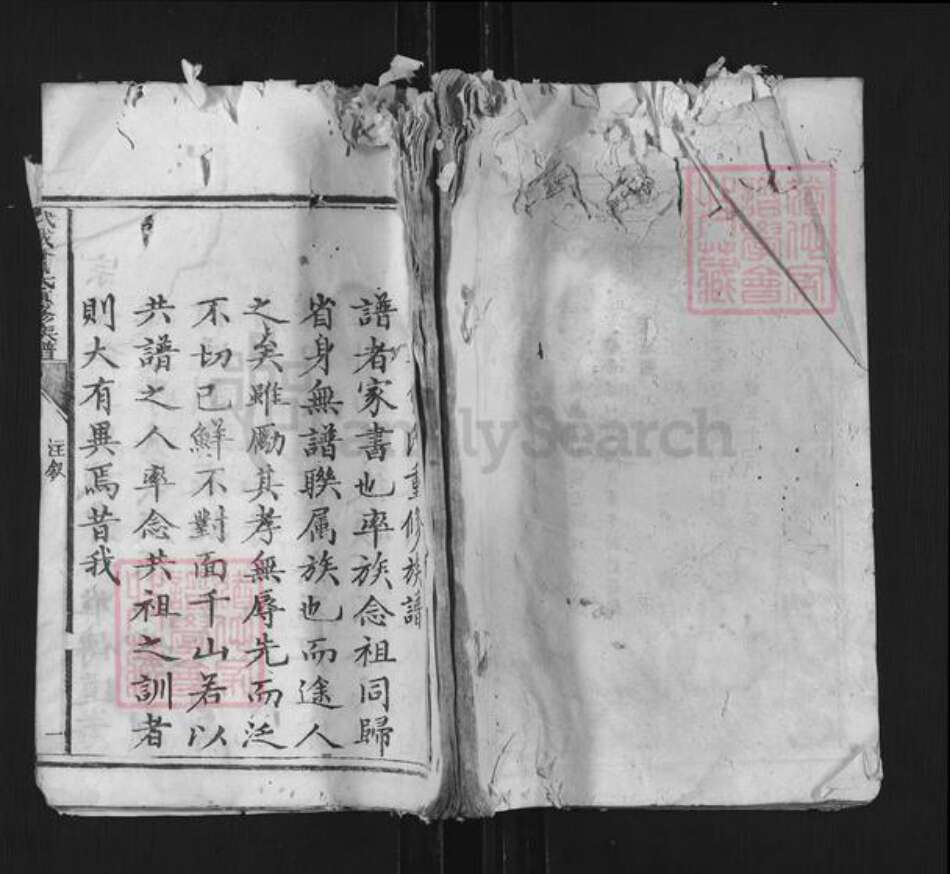 重修族譜
譜者家書也率族念祖同歸
省身無譜聯属族也而途人
之矣雖勵其孝無辱先而泛
不切己鮮不對面千山若以
共譜之人率念共祖之訓者
則大有異焉昔我
修族譜
汪叙
一
FamilySearch